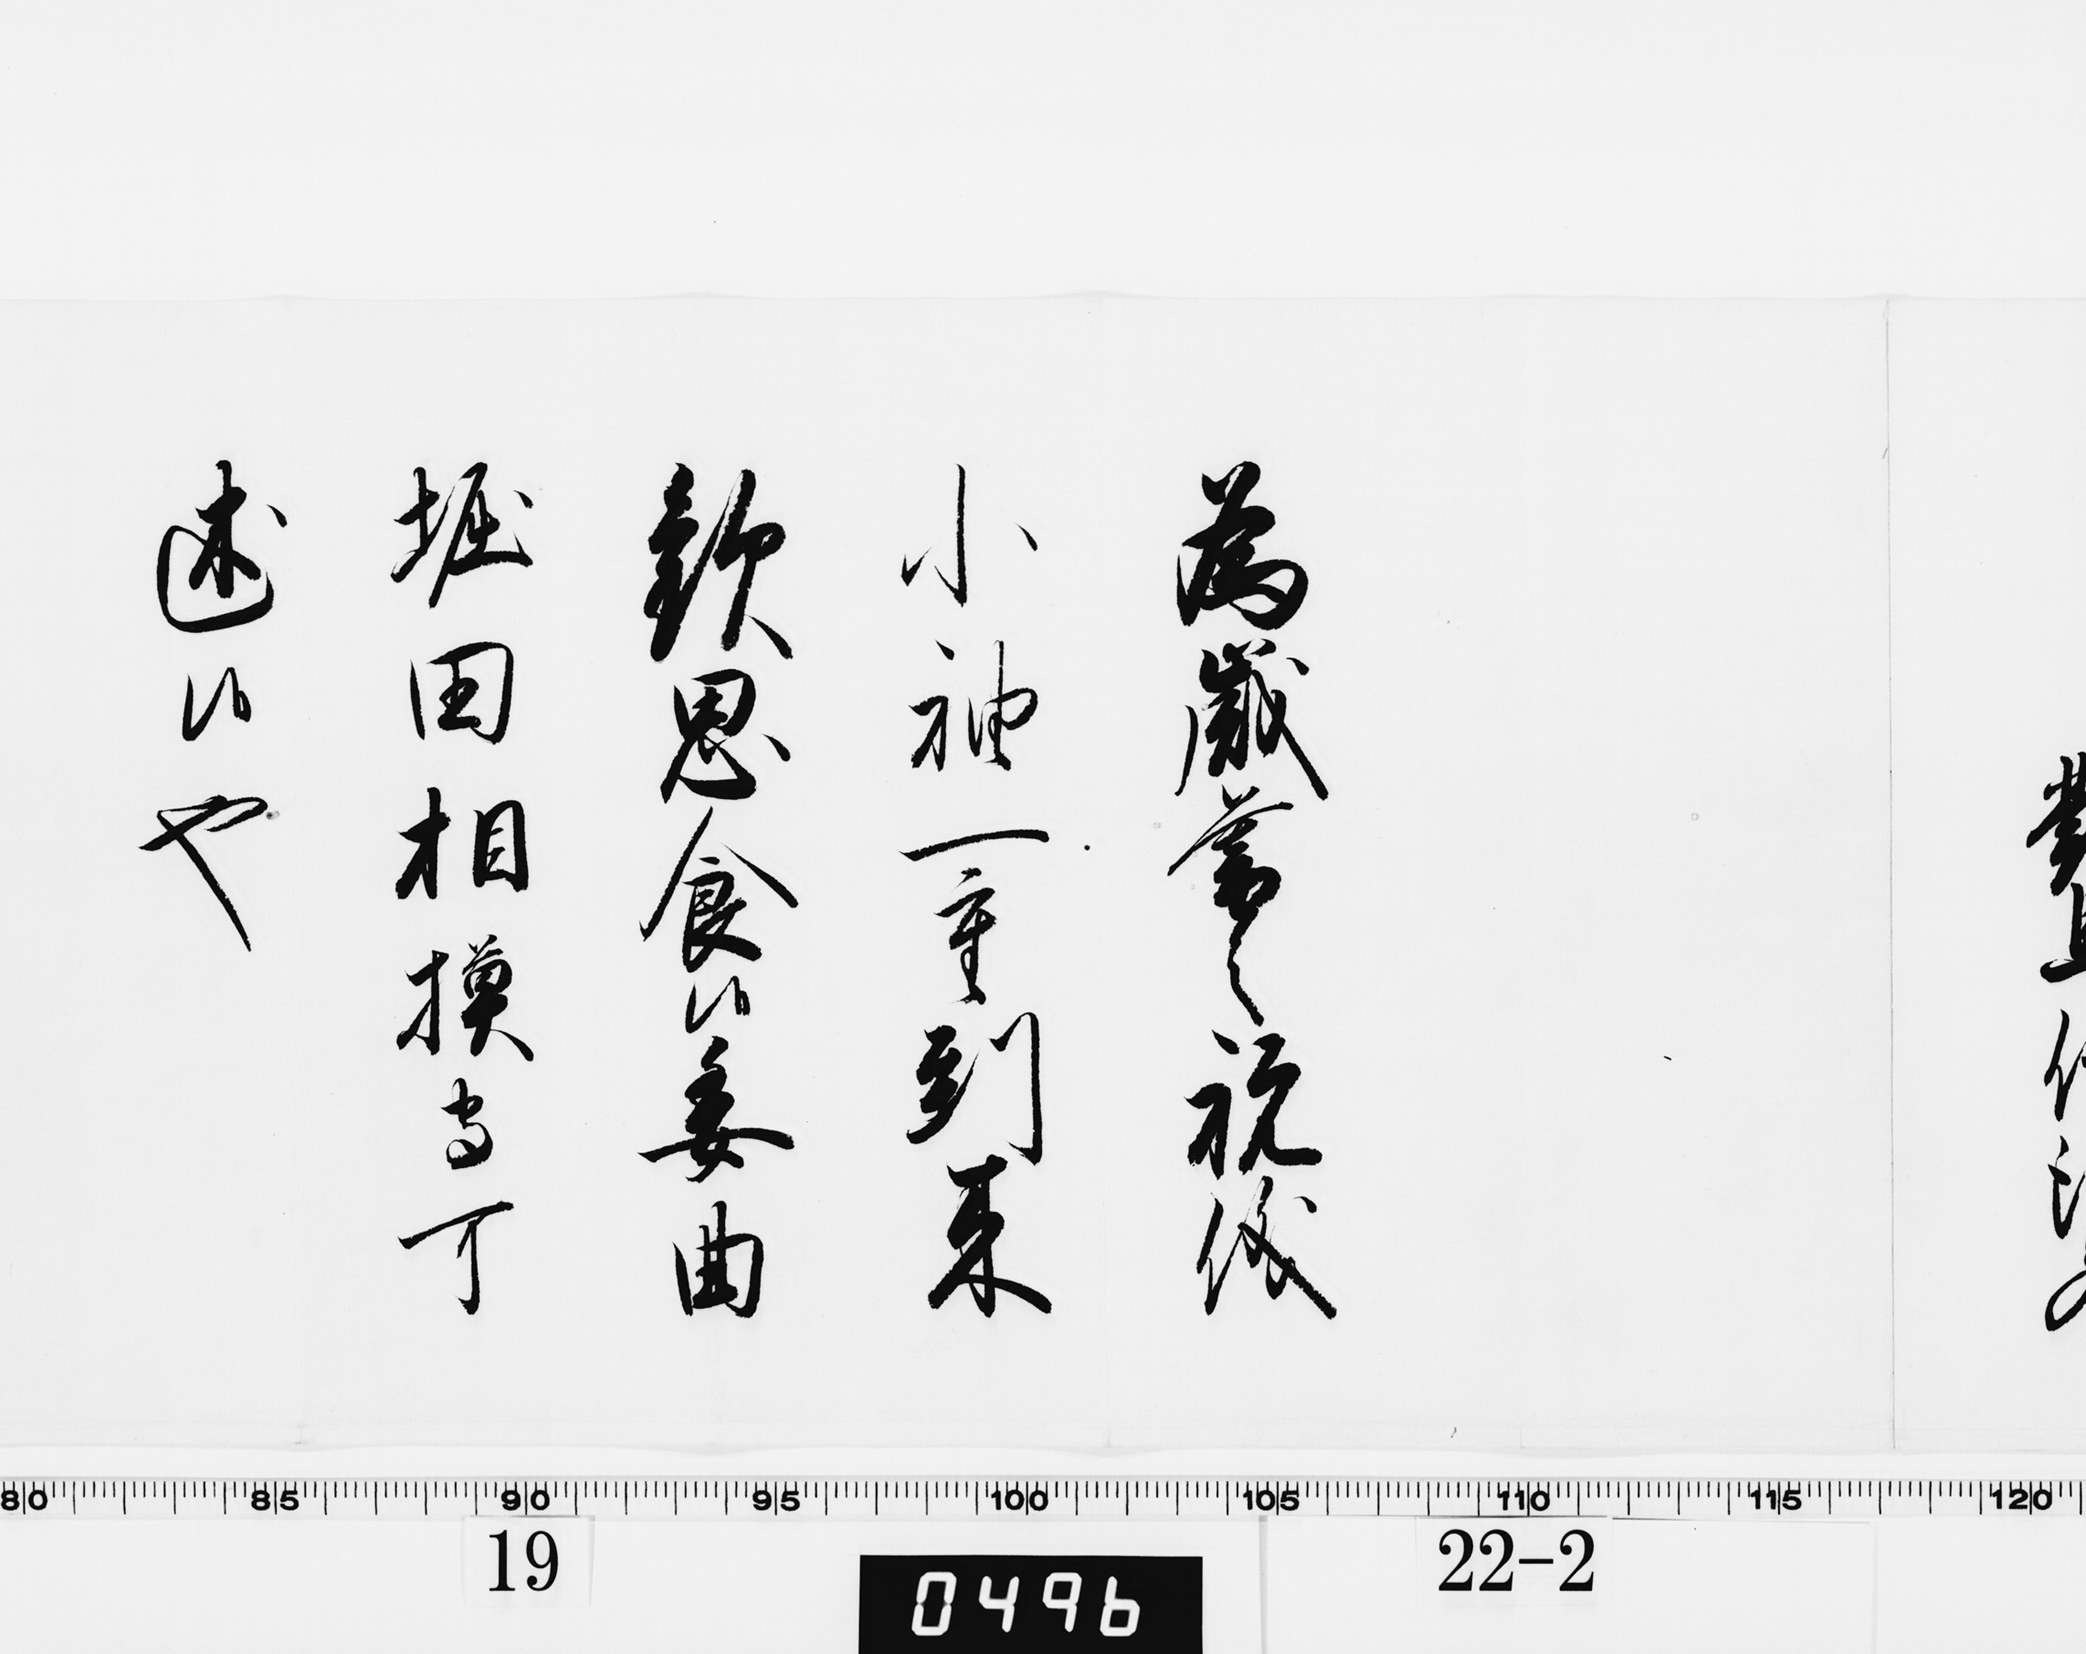 為歳暮之祝儀
小袖一重到来
歓思食候委曲
堀田相模守可
述候也
80 85 90 95 100 105 110 115 120
19
0496
22-2